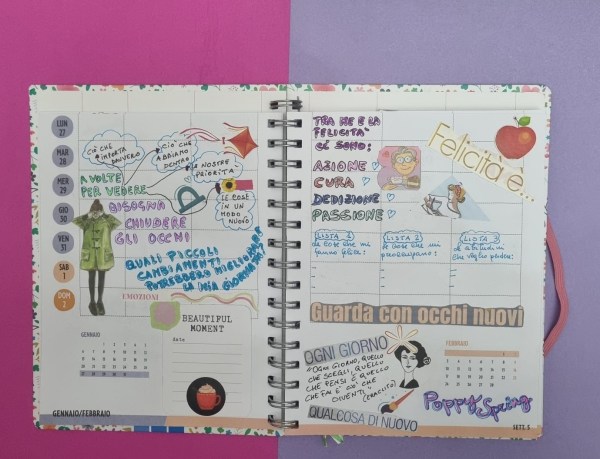 LUN
27
MAR
28
MER
29
GIO
30
VEN
31
SAB
1
DOM
2
CIÒ CHE
IMPORTA
DAVVERO
CIÒ CHE
ABBIAMO
DENTRO
LE NOSTRE
PRIORITÀ
LE COSE
IN UN
MODO
NUOVO
A VOLTE
PER VEDERE
BISOGNA
CHIUDERE
GLI OCCHI
QUALI PICCOLI
CAMBIAMENTI
POTREBBERO MIGLIORARE
LA MIA GIORNATA?
EMOZIONI
BEAUTIFUL
MOMENT
Date
GENNAIO
GENNAIO/FEBBRAIO
TRA ME E LA
FELICITÀ
CI SONO:
AZIONE
CURA
DEDIZIONE
PASSIONE
Felicità è...
LISTA 1
LE COSE CHE MI
FANNO FELICE:
LISTA 2
LE COSE CHE MI
PREOCCUPANO:
LISTA 3
Guarda con occhi nuovi
OGNI GIORNO
"OGNI GIORNO, QUELLO
CHE SCEGLI, QUELLO
CHE PENSI E QUELLO
CHE FAI È CIÒ CHE
DIVENTI."
(ERACLITO)
QUALCOSA DI NUOVO
FEBBRAIO
Poppy Spring
SETT. 5